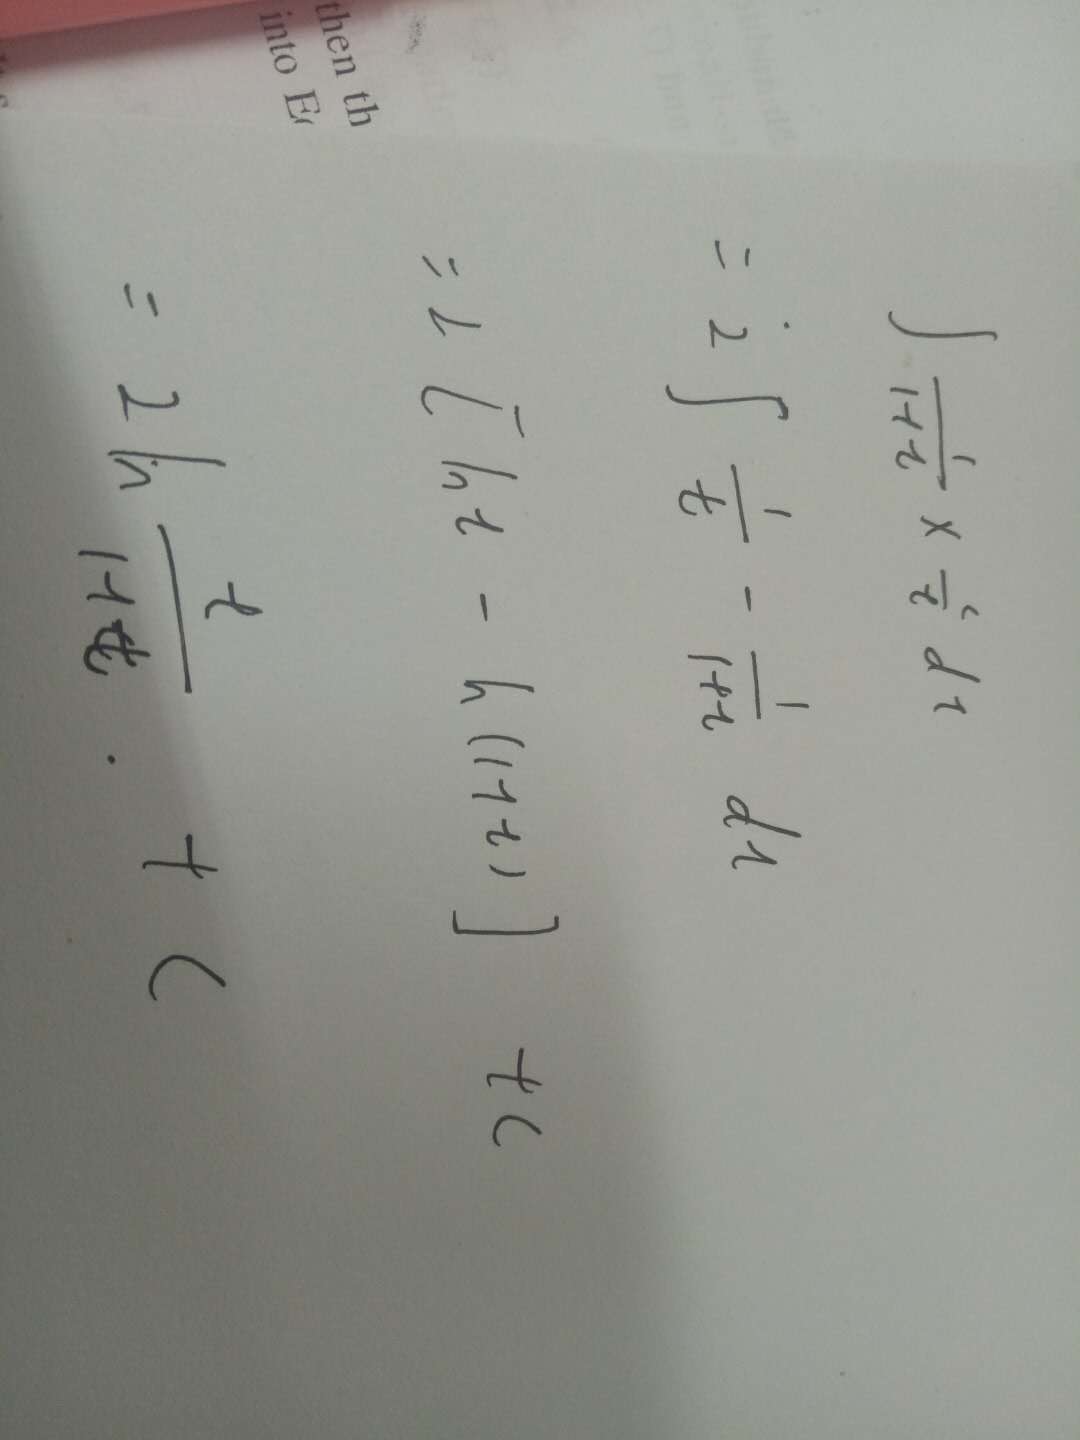 then th
into E
∫ 1/(1+t) × 2/t dt
= 2 ∫ 1/t - 1/(1+t) dt
= 2 [ ln t - ln (1+t) ] + C
= 2 ln t/(1+t) . + C